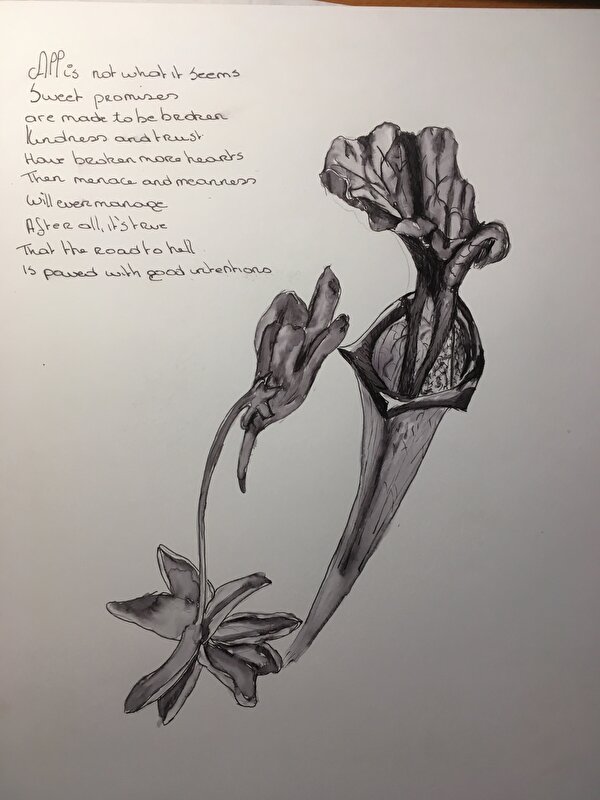 All is not what it seems
Sweet promises
are made to be broken
Kindness and trust
Have broken more hearts
Then menace and meanness
Will ever manage
After all, it's true
That the road to hell
Is paved with good intentions